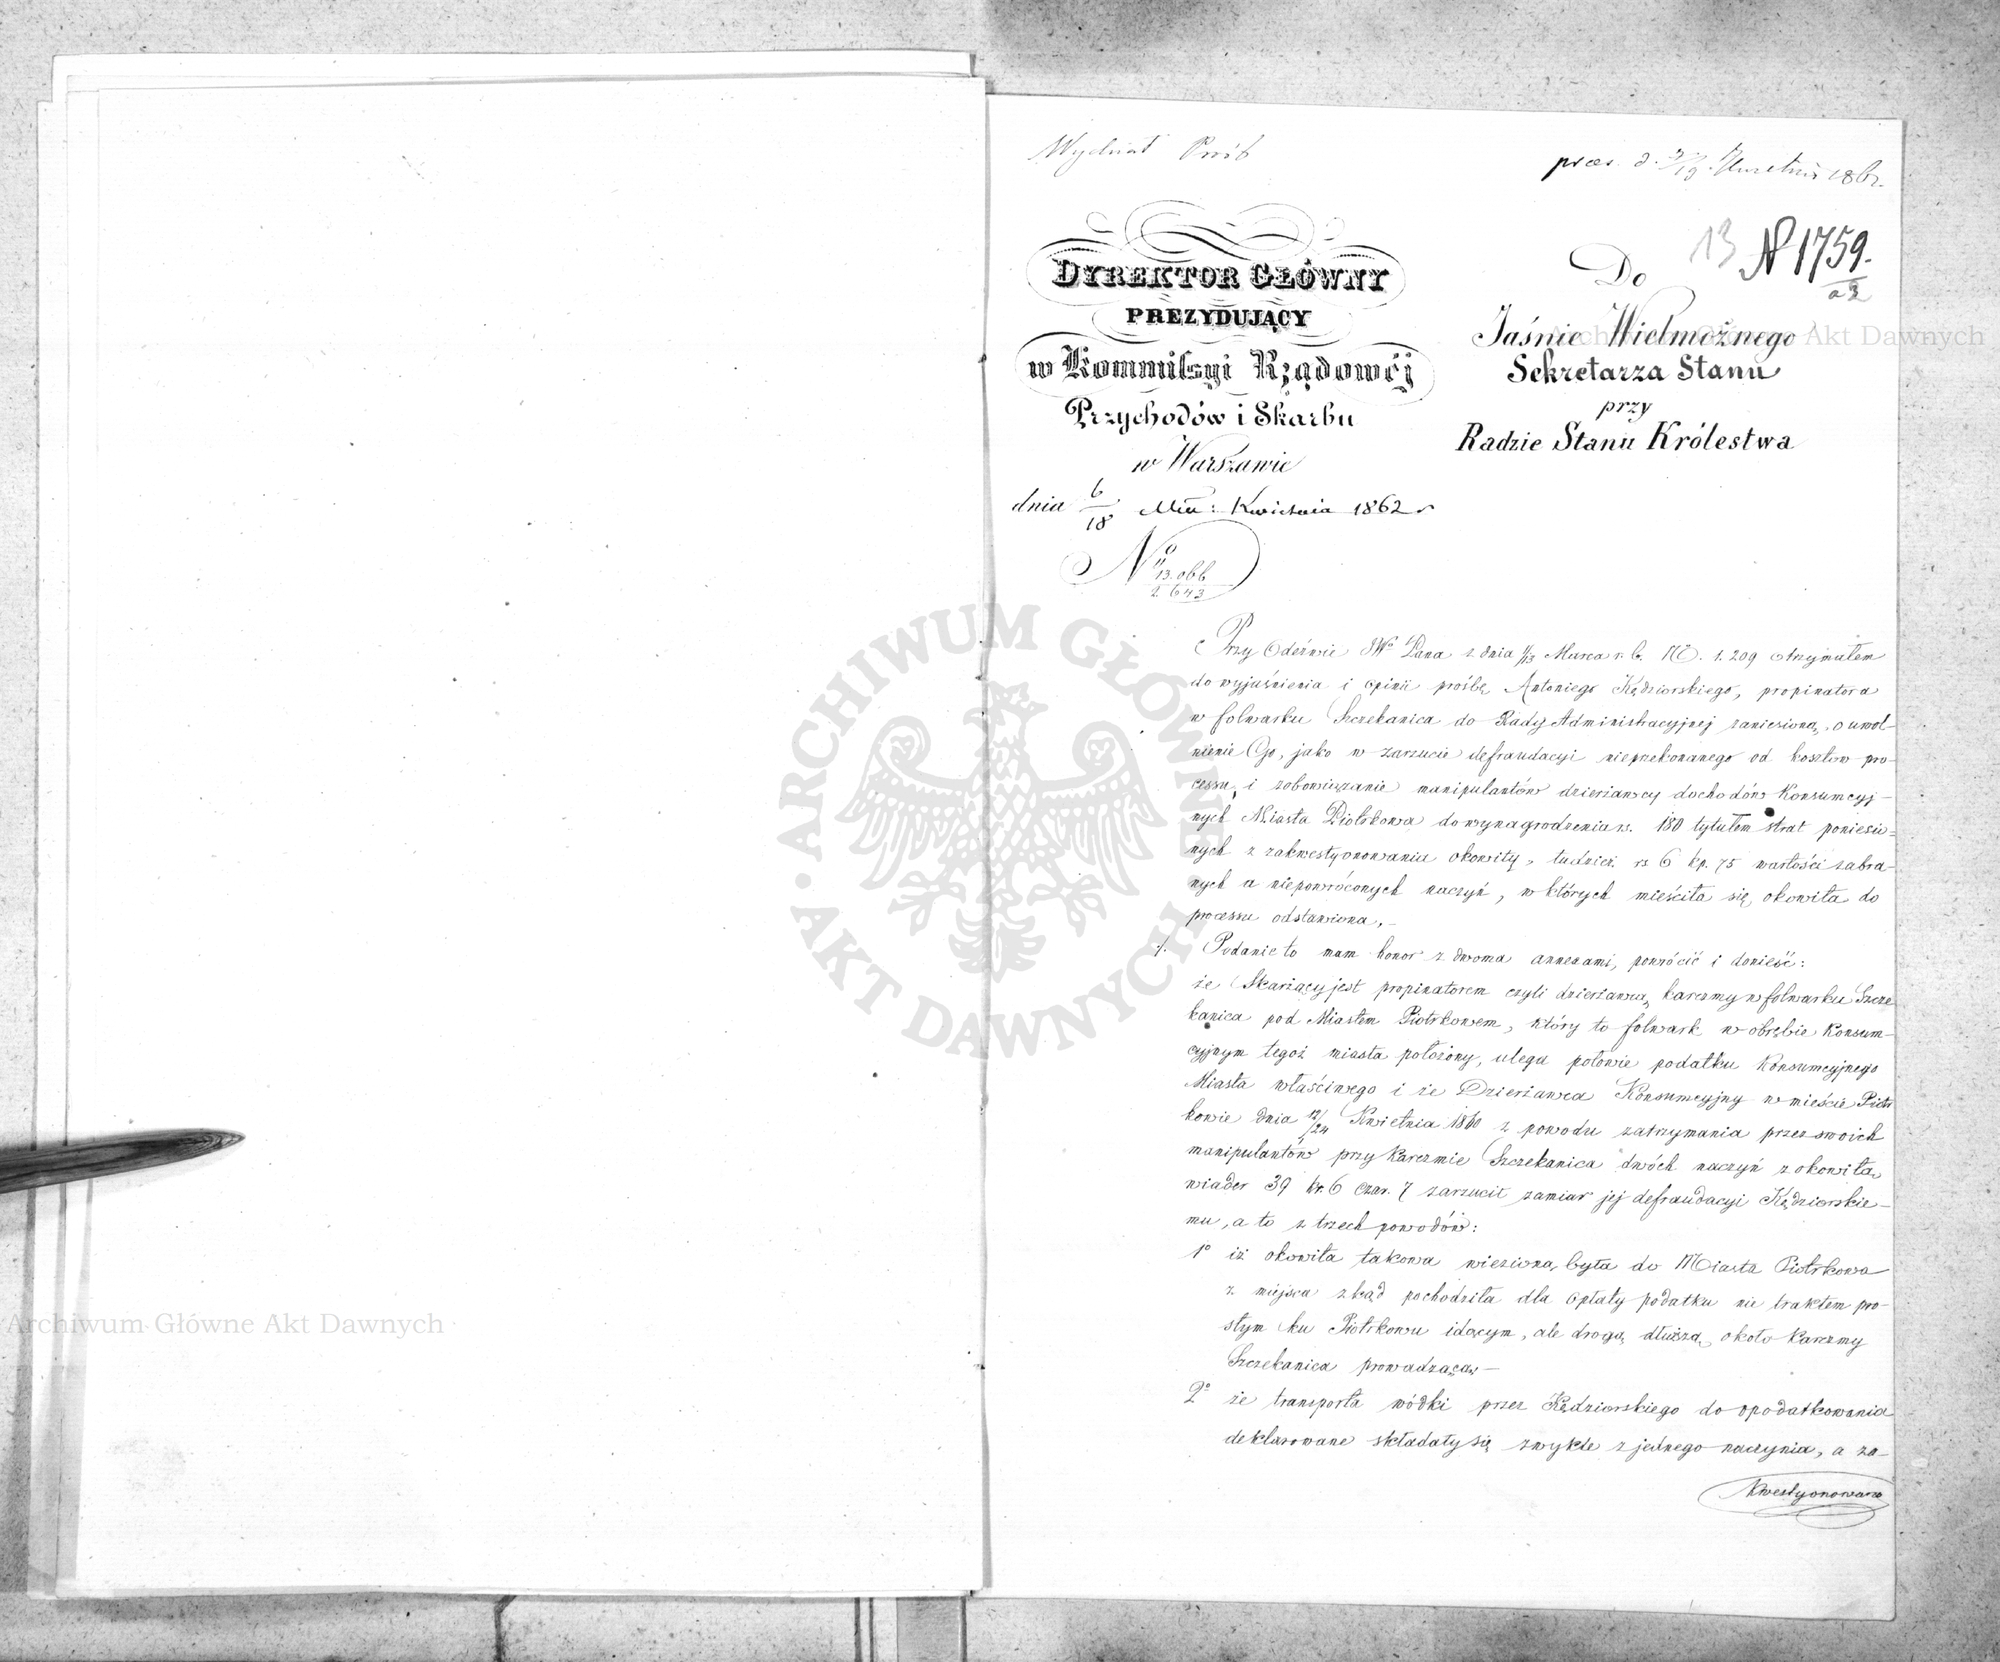 Wydział Próśb
Kwietnia 1862.
13 N 1759.
DYREKTOR GŁÓWNY
PREZYDUJĄCY
w Kommissyi Rządowéj
Przychodów i Skarbu
w Warszawie
dnia 6/18 Mca: Kwietnia 1862 r
No
13.066
2643
Do
Jaśnie Wielmożnego
Sekretarza Stanu
przy
Radzie Stanu Królestwa
Przy Odezwie JWo Pana z dnia 1/13 Marca r. b. No. 1.209 otrzymałem
do wyjaśnienia i opinii prośbę Antoniego Kędziorskiego, propinatora
w folwarku Szczekanica do Rady Administracyjnej zaniesioną, o uwol-
nienie Go, jako w zarzucie defraudacyi nieprzekonanego od kosztów pro-
cessu, i zobowiązanie manipulantów dzierżawcy dochodów Konsumcyj-
nych Miasta Piotrkowa do wynagrodzenia rs. 180 tytułem strat poniesio-
nych z zakwestyonowania okowity, tudzież rs 6 kp. 75 wartości zabra-
nych a niepowróconych naczyń, w których mieściła się okowita do
processu odstawiona.—
./. Podanie to mam honor z dwoma annexami, powrócić i donieść:
że Skarżący jest propinatorem czyli dzierżawcą karczmy w folwarku Szcze
kanica pod Miastem Piotrkowem, który to folwark w obrębie Konsum-
cyjnym tegoż miasta położony, ulega połowie podatku Konsumcyjnego
Miasta właściwego i że Dzierżawca Konsumcyjny w mieście Piotr
kowie dnia 12/24 Kwietnia 1860 z powodu zatrzymania przez swoich
manipulantów przy karczmie Szczekanica dwóch naczyń z okowitą
wiader 39 kr. 6 czar. 7 zarzucił zamiar jej defraudacyi Kędziorskie-
mu, a to z trzech powodów:
1o iż okowita takowa wiezioną była do Miasta Piotrkowa
z miejsca zkąd pochodziła dla opłaty podatku nie traktem pro-
stym ku Piotrkowu idącym, ale drogą dłuższą około karczmy
Szczekanica prowadzącą;—
2o że transporta wódki przez Kędziorskiego do opodatkowania
deklarowane składały się zwykle z jednego naczynia, a za-
kwestyonowano
Archiwum Główne Akt Dawnych
ARCHIWUM GŁÓWNE AKT DAWNYCH
Archiwum Główne Akt Dawnych